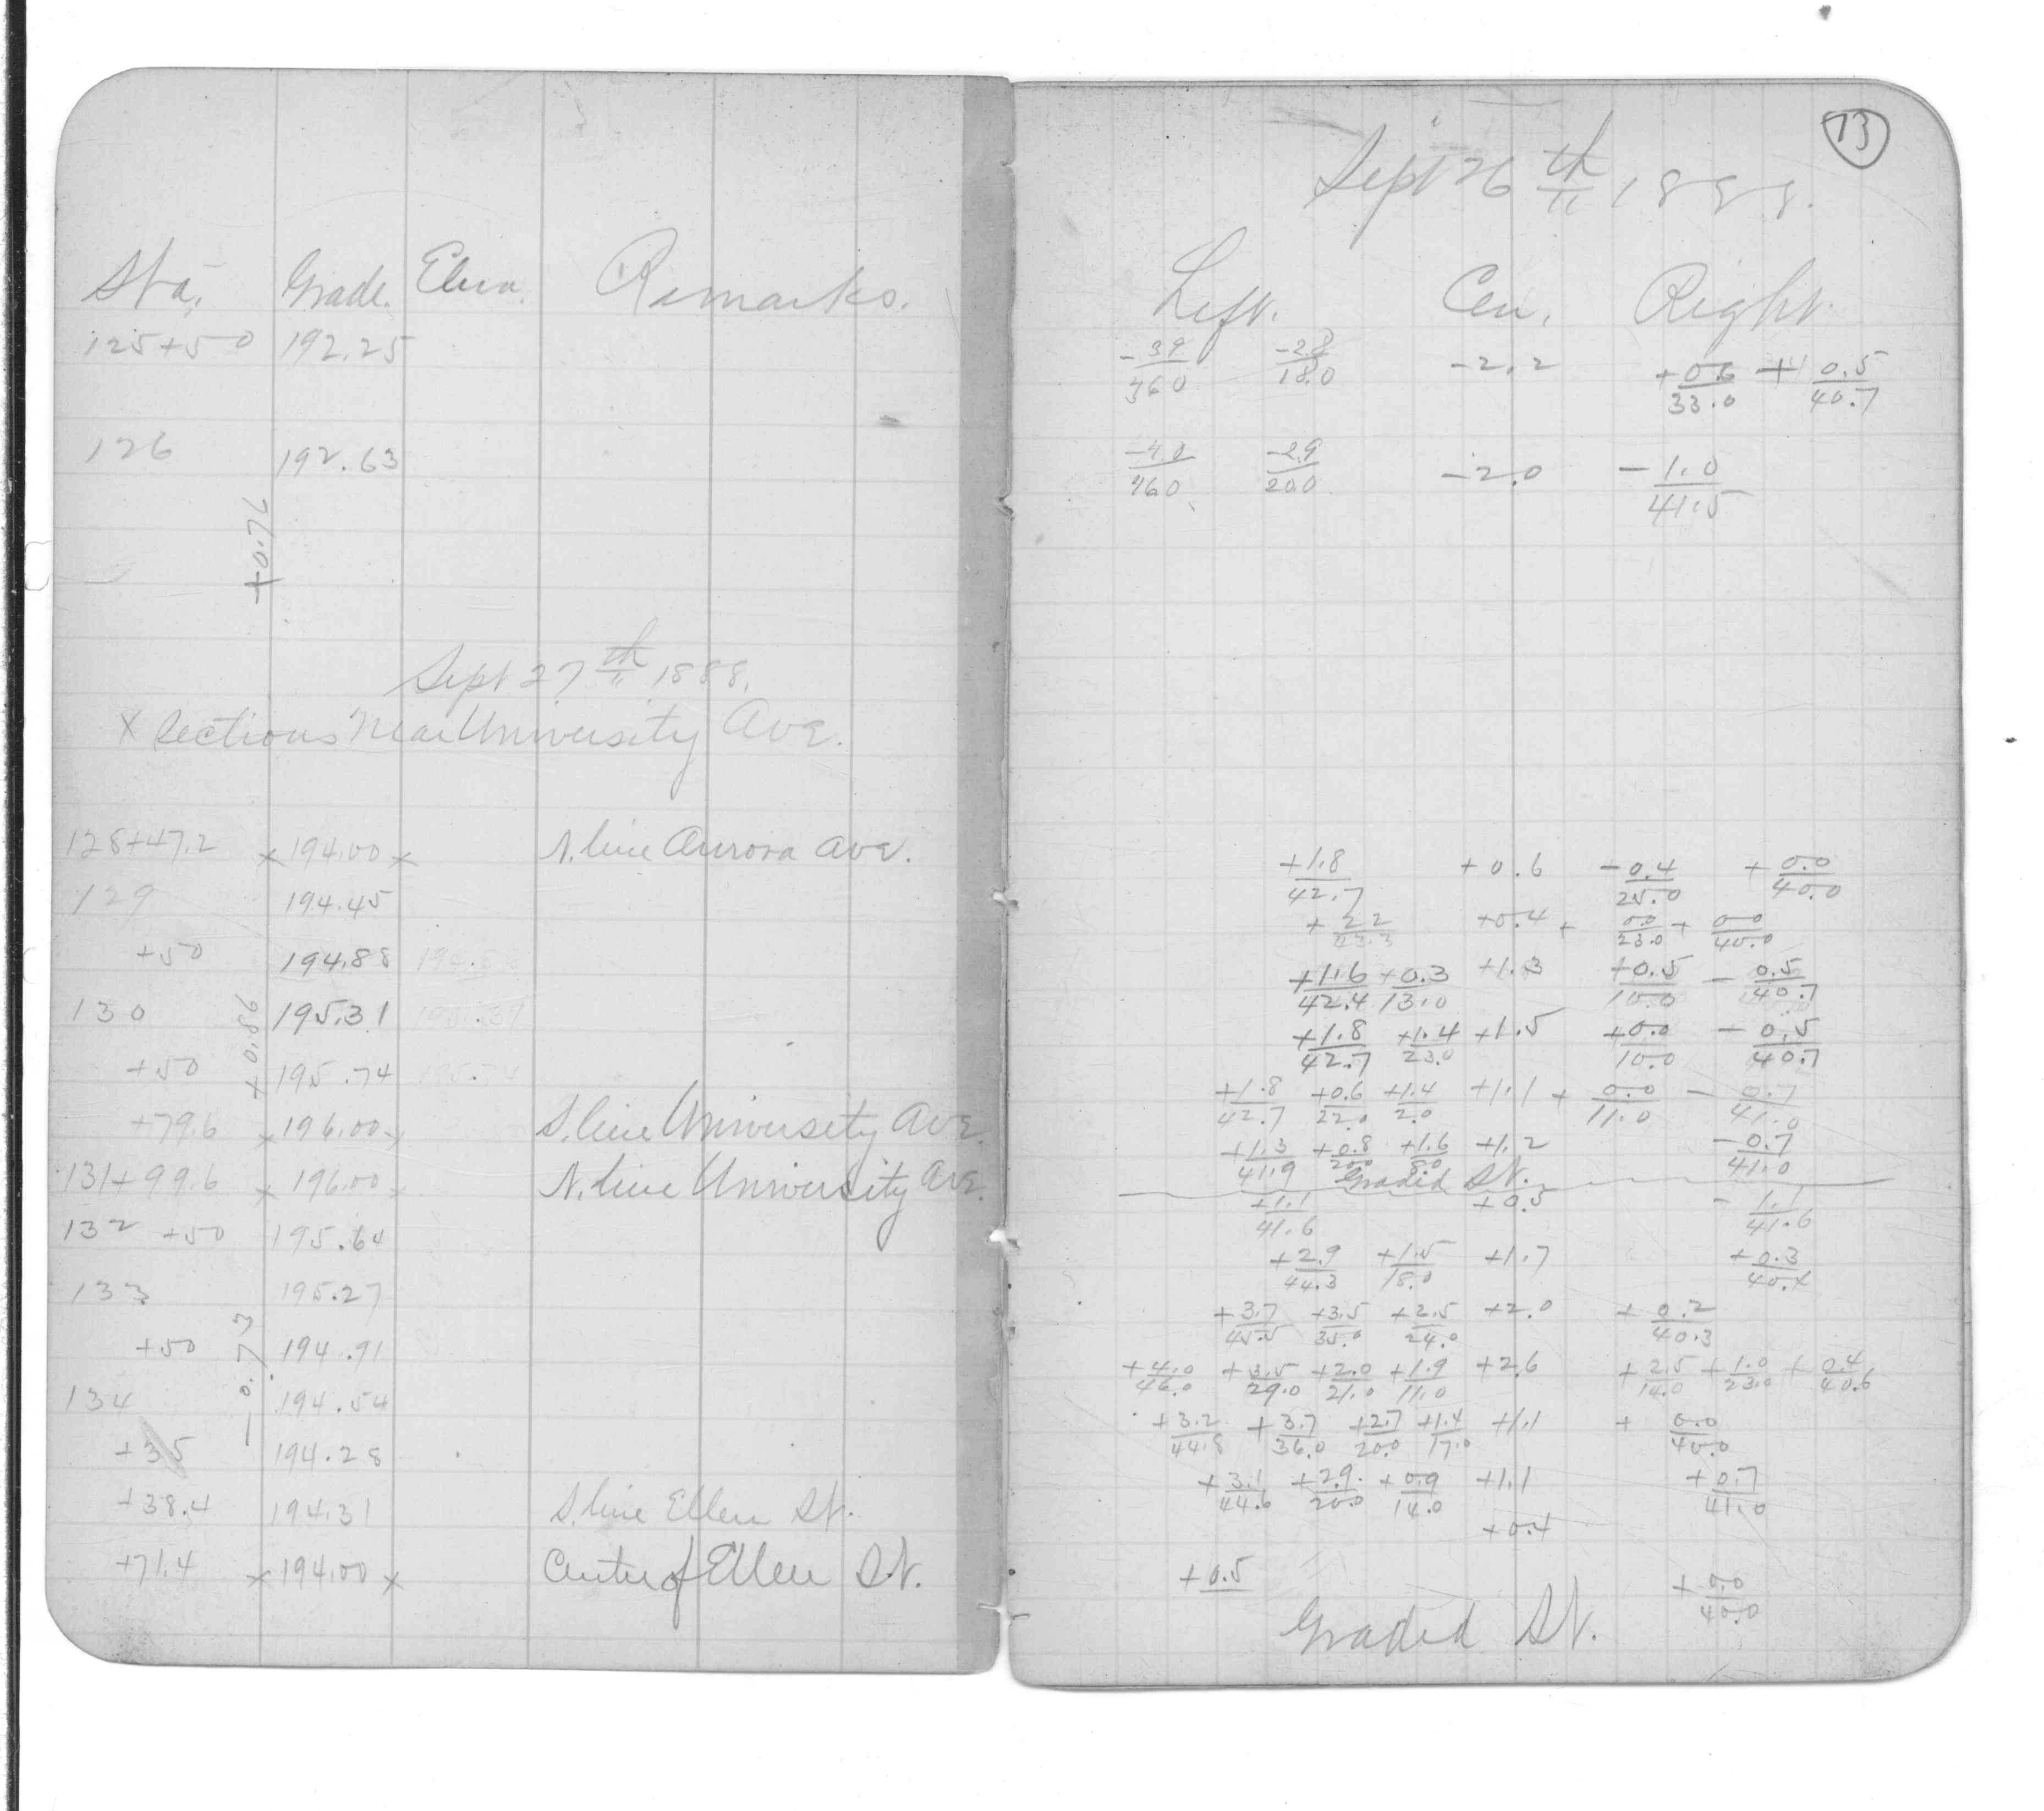 Sta. Grade. Eleva. Remarks.
125+50 192.25
126 192.63
+0.76
Sept 27th 1888.
X Sections Near University Ave.
128+47.2 x 194.00 x N. line Aurora Ave.
129 194.45
+50 194.88
130 195.31
+0.86
+50 195.74 195.74
+79.6 x 196.00 x S. line University Ave.
131+99.6 x 196.00 x N. line University Ave.
132 +50 195.64
133 195.27
+50 194.91
-0.73
134 194.54
+35 194.28
+38.4 194.31 S. line Ellen St.
+71.4 x 194.00 x Center of Ellen St.
13
Sept 26th 1888.
Left. Cen. Right.
-3.9/46.0 -2.8/18.0 -2.2 +0.6/33.0 + 0.5/40.7
-4.0/46.0 -2.9/20.0 -2.0 -1.0/41.5
+1.8/42.7 +0.6 -0.4/25.0 +0.0/40.0
+2.2/43.3 +0.4 +0.0/23.0 +0.0/40.0
+1.6/42.4 +0.3/13.0 +1.3 +0.5/10.0 -0.5/40.7
+1.8/42.7 +1.4/23.0 +1.5 +0.0/10.0 -0.5/40.7
+1.8/42.7 +0.6/22.0 +1.4/2.0 +1.1 +0.0/11.0 -0.7/41.0
+1.3/41.9 +0.8/20.0 +1.6/8.0 +1.2 -0.7/41.0
Graded St.
+1.1/41.6 +0.5 -1.1/41.6
+2.9/44.3 +1.5/18.0 +1.7 +0.3/40.4
+3.7/45.5 +3.5/35.0 +2.5/24.0 +2.0 +0.2/40.3
+4.0/46.0 +3.5/29.0 +2.0/21.0 +1.9/11.0 +2.6 +2.5/14.0 +1.0/23.0 +0.4/40.6
+3.2/44.8 +3.7/36.0 +2.7/20.0 +1.4/17.0 +1.1 +0.0/40.0
+3.1/44.6 +2.9/20.0 +0.9/14.0 +1.1 +0.7/41.0
+0.4
+0.5 +0.0/40.0
Graded St.